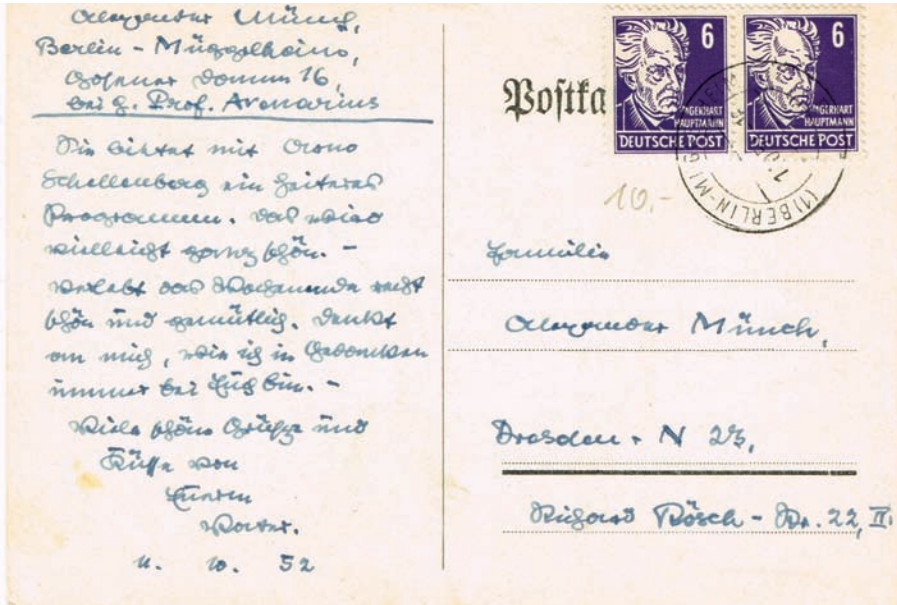 Alexander Münch,
Berlin - Müggelheim,
Gosener Damm 16,
bei H. Prof. Arenarius
Sie bietet mit Arno
Schellenberg ein heiteres
Programm. Das wird
vielleicht ganz schön. -
Verlebt das Wochenende recht
schön und gemütlich. Denkt
an mich, wie ich in Gedanken
immer bei Euch bin. -
Viele schöne Grüße und
Küsse von
Eurem
Vater.
10. 52
Postka
6
GERHART
HAUPTMANN
DEUTSCHE POST
6
GERHART
HAUPTMANN
DEUTSCHE POST
(1) BERLIN-M
10.-
Familie
Alexander Münch,
Dresden - N 23,
Richard Rösch - Str. 22, II.